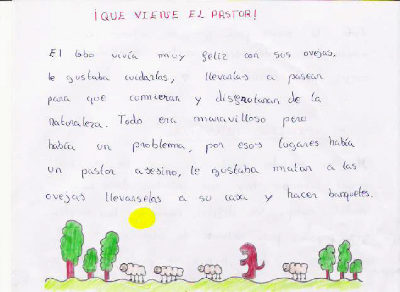 ¡QUE VIENE EL PASTOR!
El lobo vivía muy feliz con sus ovejas,
le gustaba cuidarlas, llevarlas a pasear
para que comieran y disfrutaran de la
naturaleza. Todo era maravilloso pero
había un problema, por esos lugares había
un pastor asesino, le gustaba matar a las
ovejas llevarselas a su casa y hacer banquetes.